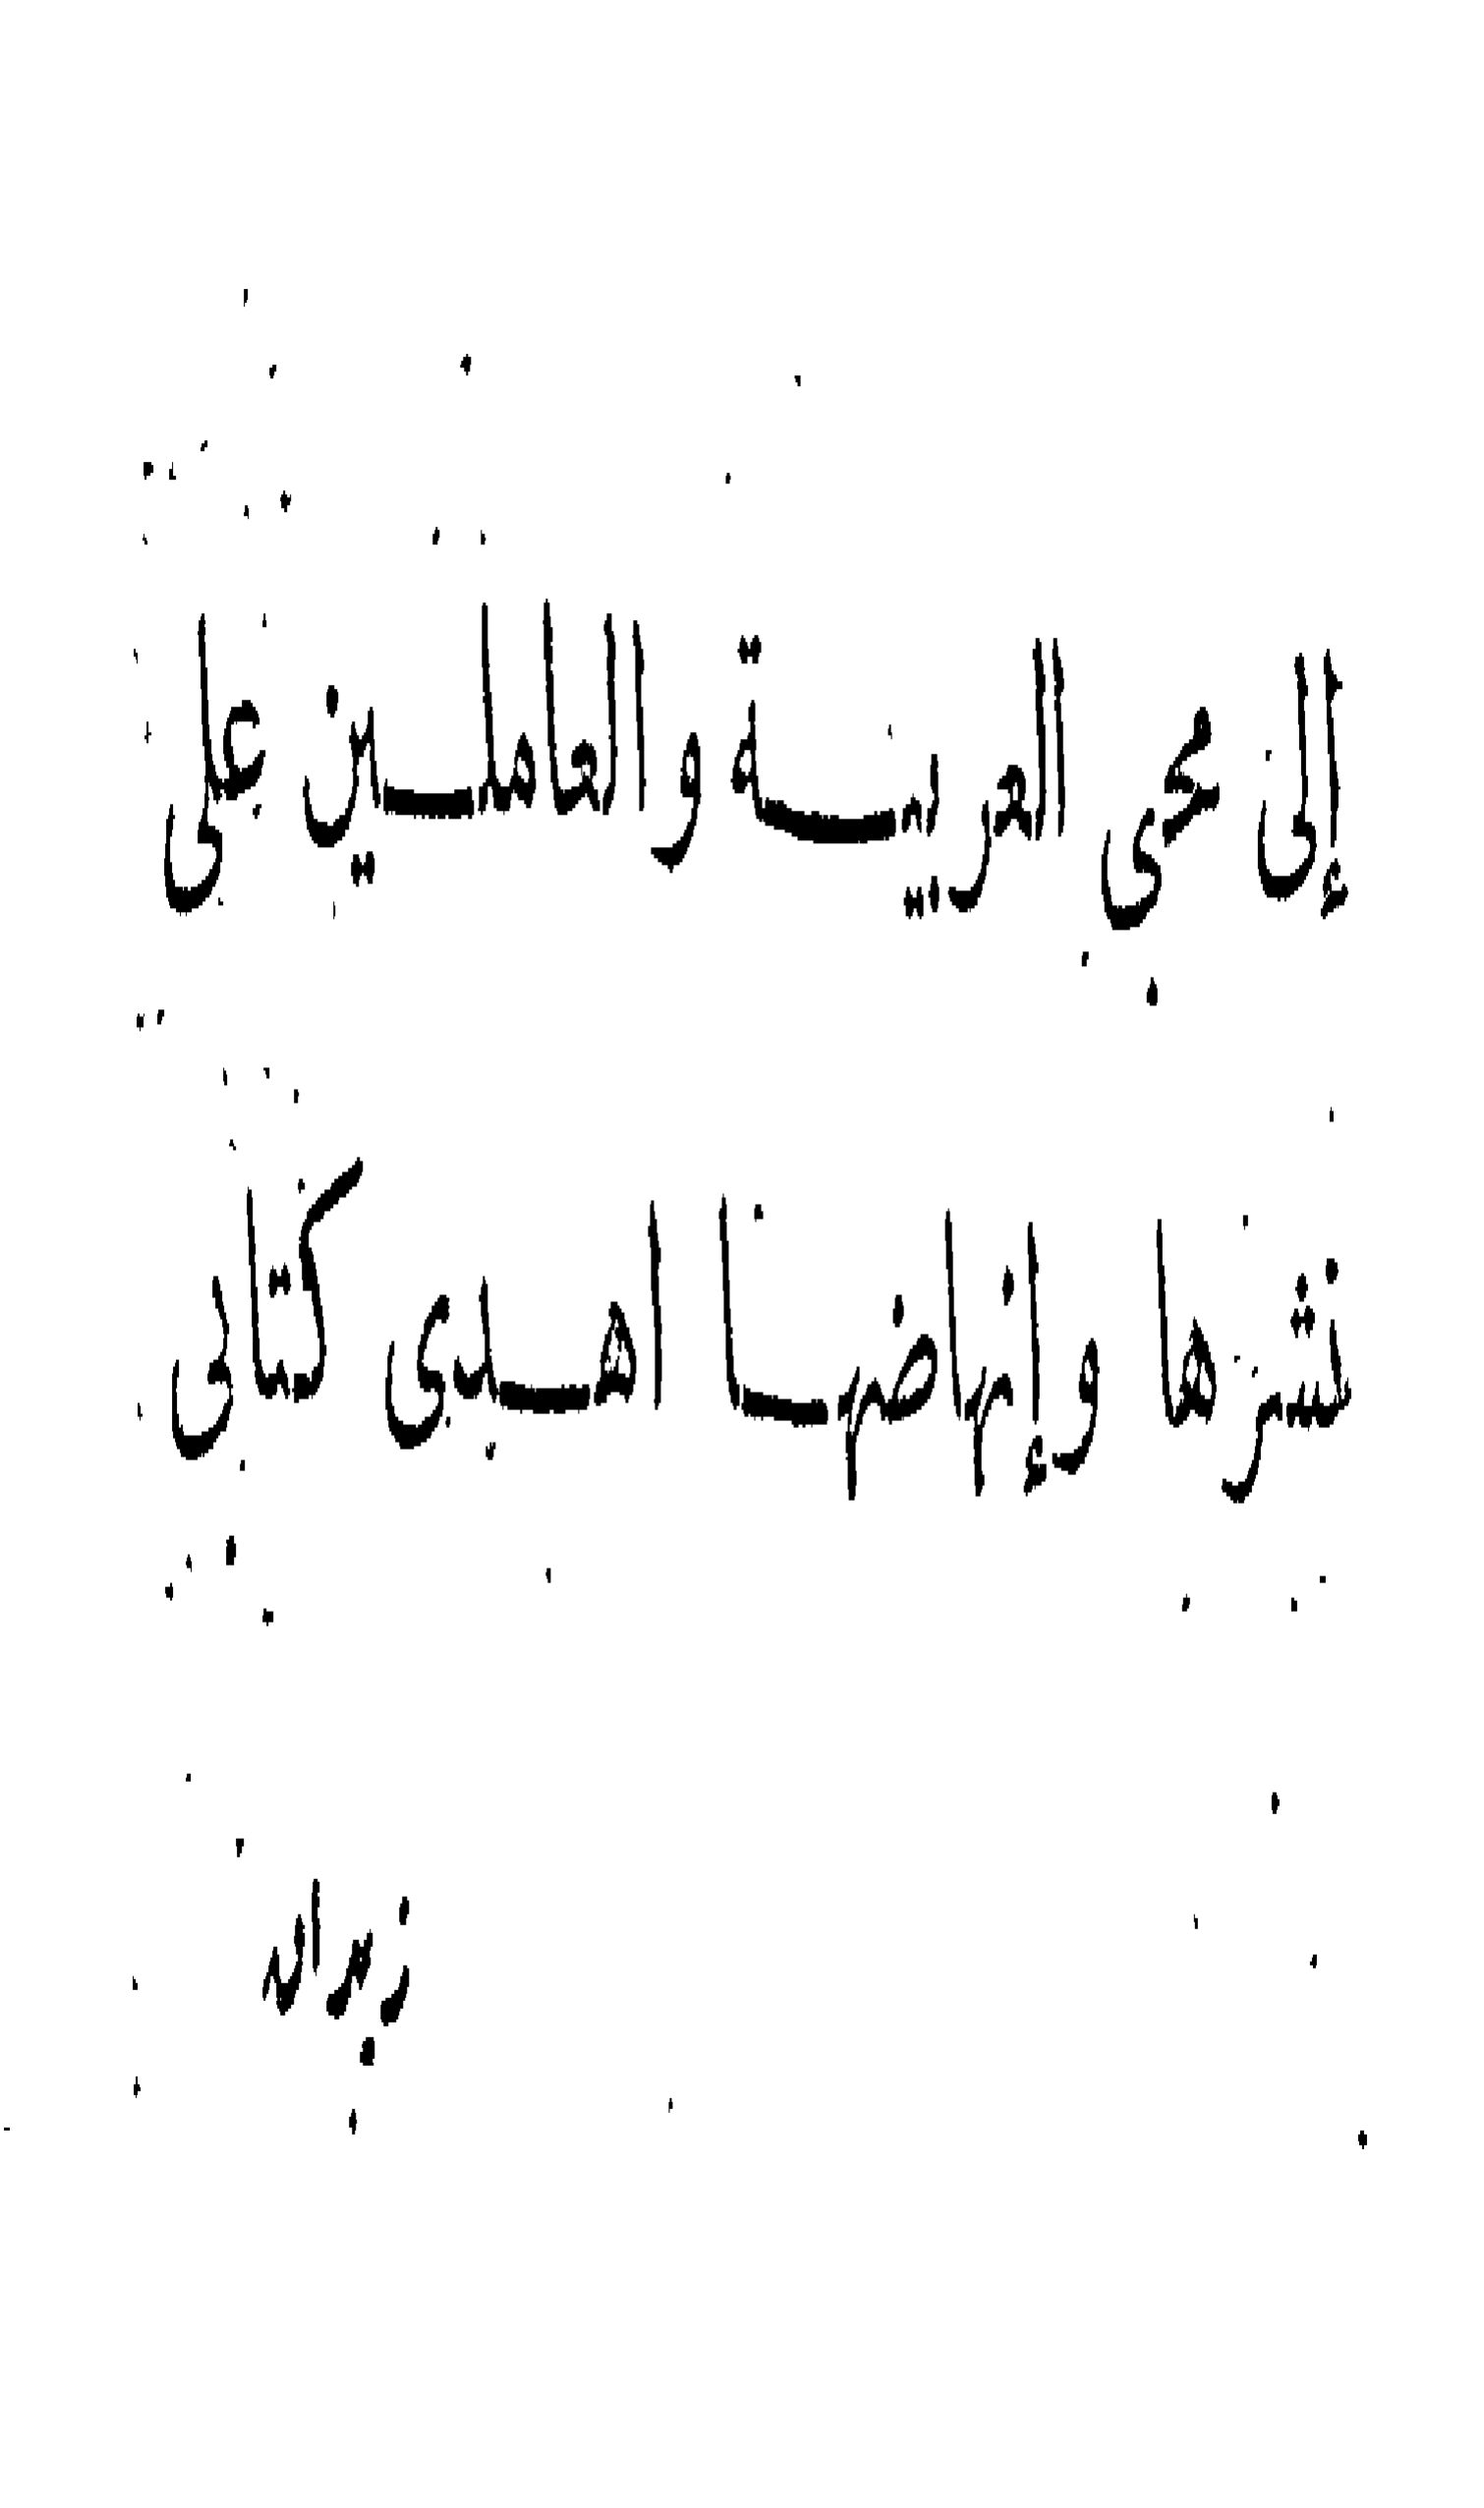 إلى محبي العربية والعاملين على
نشرها وإنهاضها أهدي كتابي
زهران